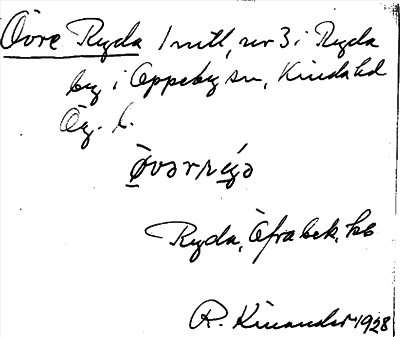 Övre Ryda 1 mtl, nr 3 i Ryda
by i Oppeby sn, Kinda hd
Ög. l.
Ryda, Öfra bek. hb
R. Kinander 1928